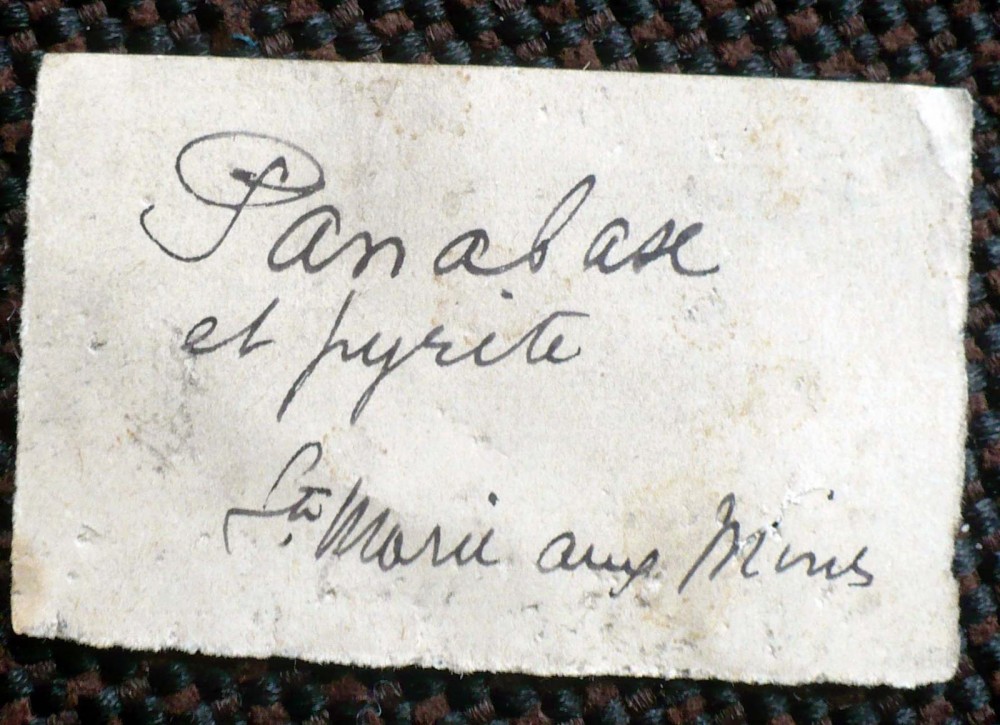 Panabase
et pyrite
Ste Marie aux Mines